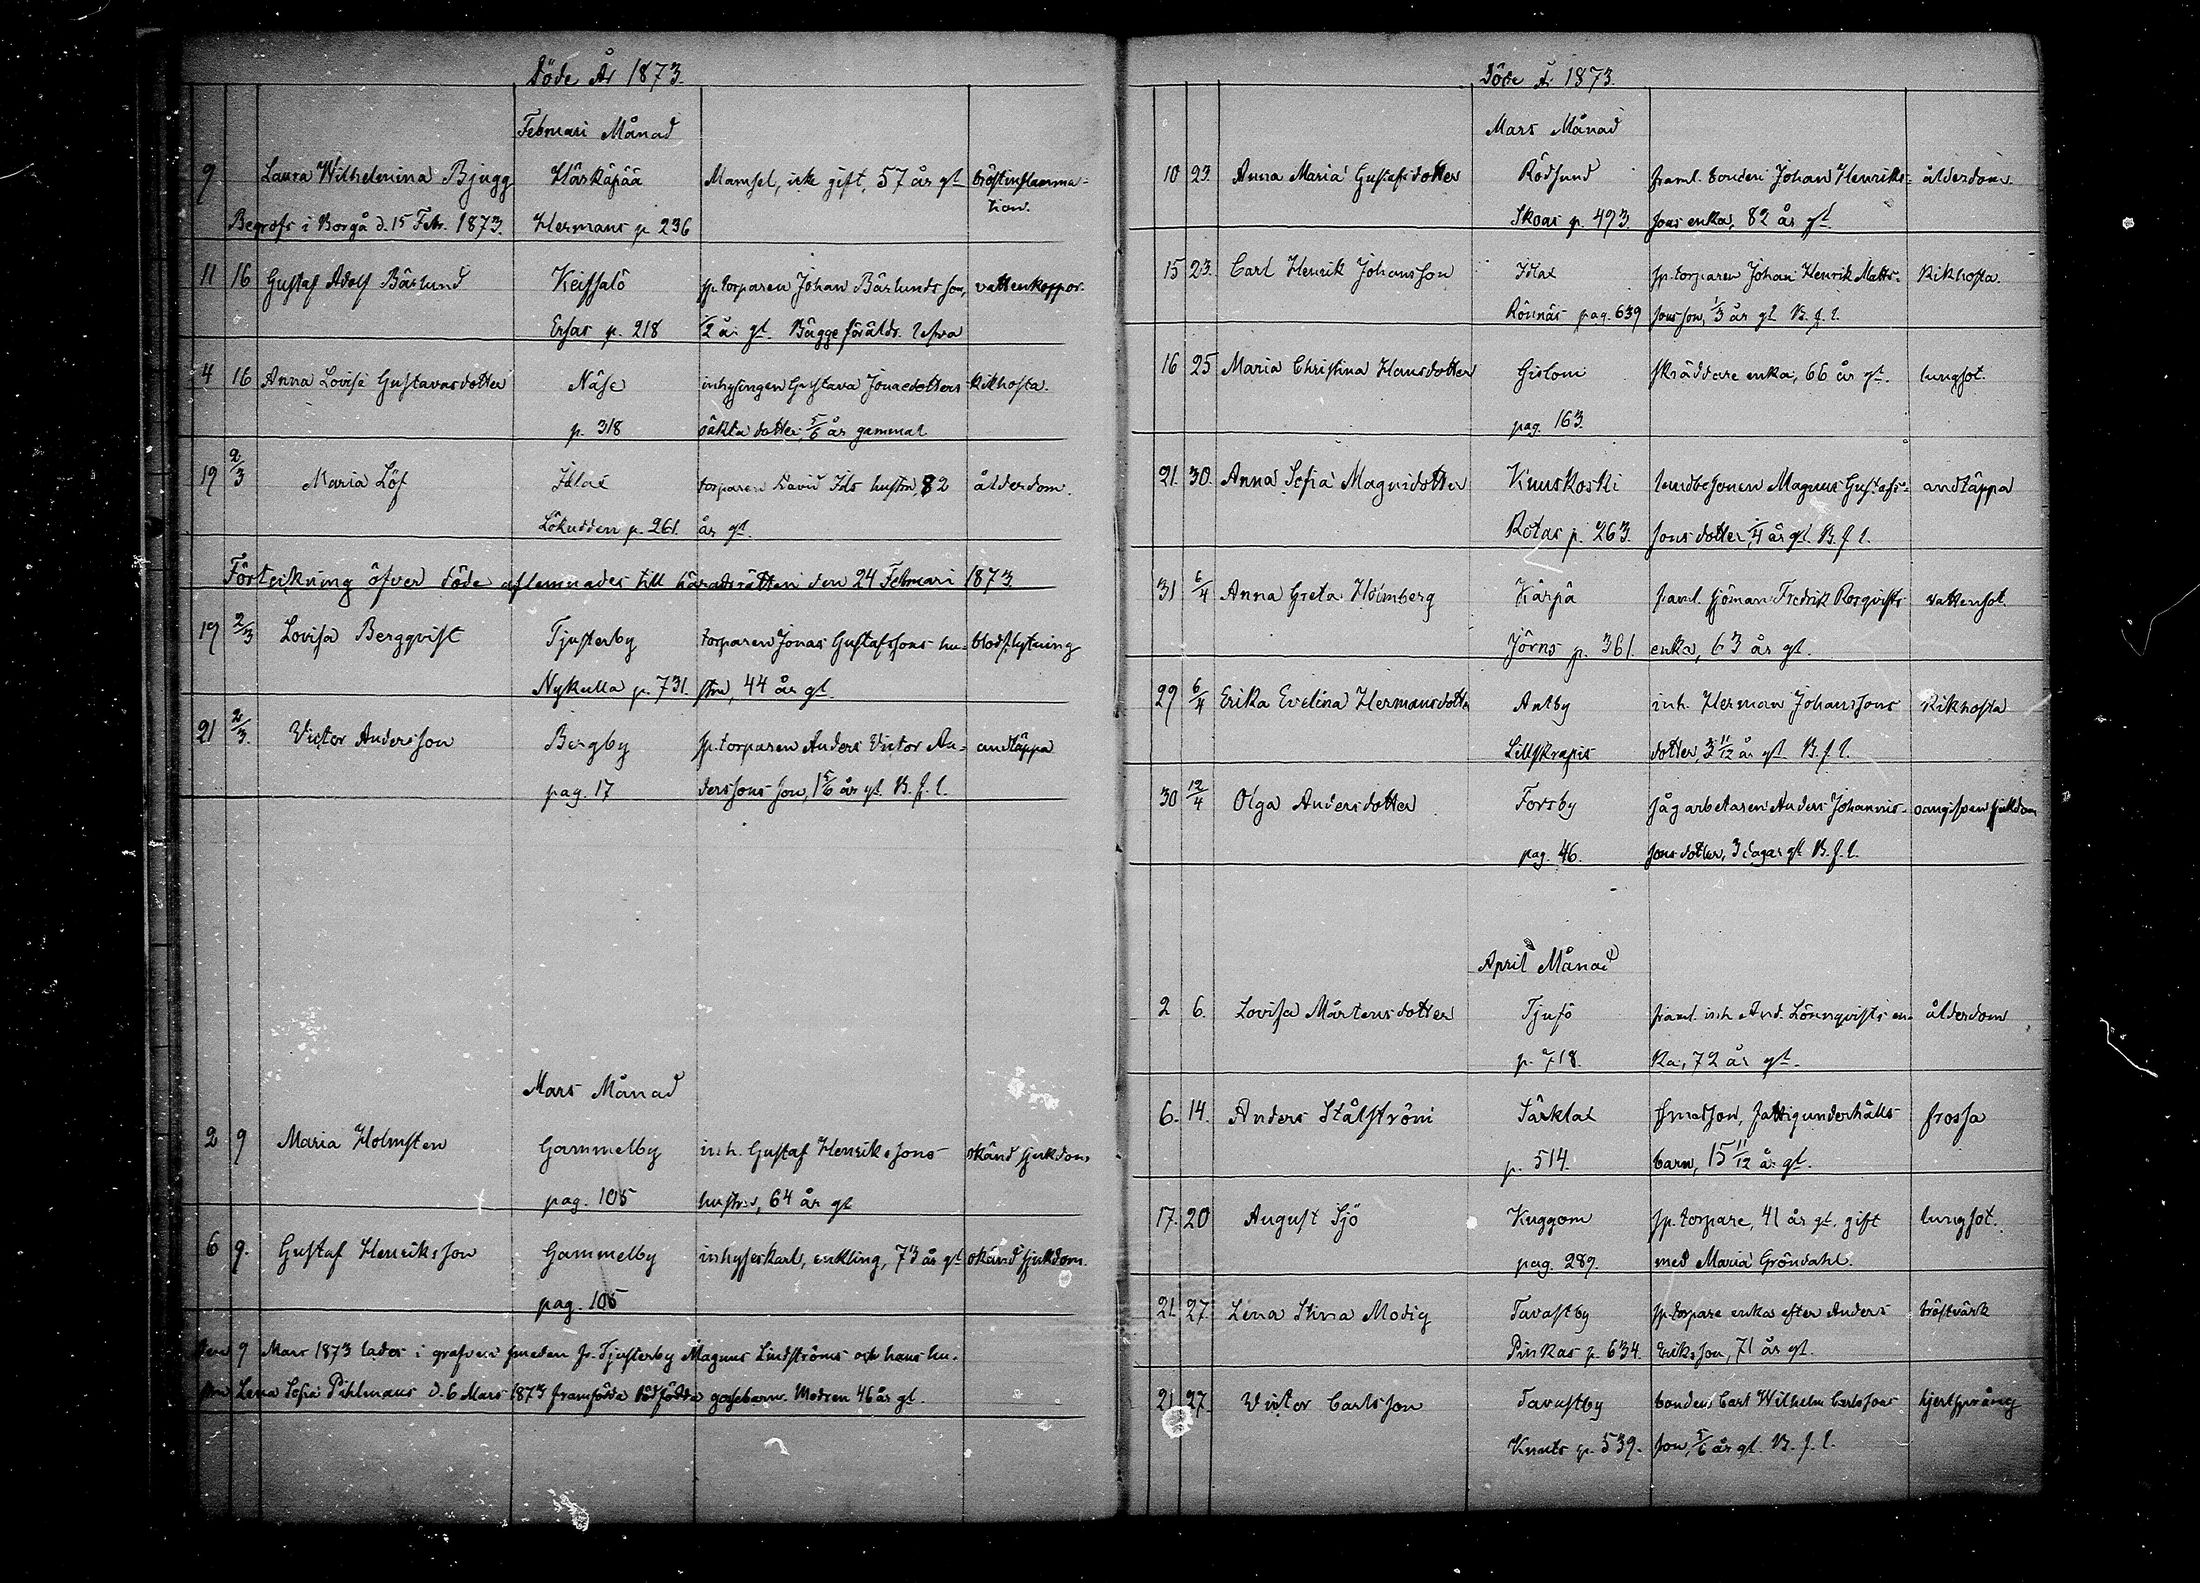 Döde År 1873.
Februari Månad
9 Laura Wilhelmina Bjugg Härkäpää Mamsel, icke gift, 57 år gl bröstinflamma-
tion.
Begrofs i Borgå d. 15 Febr. 1873. Hermans p. 236
11 16 Gustaf Adolf Bärlund Keitsalö sp. torparen Johan Bärlunds son, vattenkoppor.
Ersas p. 218 1/2 år gl. Bägge föräldr. lefva
4 16 Anna Lovisa Gustavasdotter Näse inhysingen Gustava Jonaedotters kikhosta.
p. 318 oäkta dotter, 5/6 år gammal
19 2/3 Maria Löf Idlax torparen David Ids hustru, 82 ålderdom.
Lökudden p. 261. år gl.
Förteckning öfver döde aflemnades till häradsrätten den 24 Februari 1873
19 2/3 Lovisa Bergqvist Tjusterby torparen Jonas Gustafssons hu- blodstytning
Nykulla p. 731. stru, 44 år gl.
21 2/3. Victor Andersson Bergby sp. torparen Anders Victor An- andtäppa
pag. 17 derssons son, 1 5/6 år gl. B. f. l.
Mars Månad
2 9 Maria Holmsten Gammelby inh. Gustaf Henrikssons okänd sjukdom
pag. 105 hustru, 64 år gl
6 9. Gustaf Henriksson Gammelby inhyseskarl, enkling, 73 år gl okänd sjukdom.
pag. 105
Den 9 Mars 1873 lades i grafven smeden fr. Tjusterby Magnus Lindströms och hans hu-
stru Lena Sofia Pihlmans d. 6 Mars 1873 framfödda dödfödda gossebarn. Modren 46 år gl.
Döde År 1873.
Mars Månad
10 23 Anna Maria Gustafsdotter Rödsund framl. bonden Johan Henriks- ålderdom.
Skoas p. 493. sons enka, 82 år gl.
15 23. Carl Henrik Johansson Idlax sp. torparen Johan Henrik Matts- kikhosta.
Rönnäs pag. 639 sons son, 1/3 år gl. B. f. l.
16 25 Maria Christina Hansdotter Gislom skräddare enka, 66 år gl. lungsot.
pag. 163.
21. 30. Anna Sofia Magnidotter Kuuskoski landbosonen Magnus Gustafs- andtäppa
Rotas p. 263. sons dotter, 1/4 år gl. B. f. l.
31 6/4 Anna Greta Holmberg Kärpä framl. sjöman Fredrik Rosqvists vattensot.
Jörns p. 361. enka, 63 år gl.
29 6/4 Erika Evelina Hermansdotter Antby inh. Herman Johanssons kikhosta
Lillskrapis dotter, 3 11/12 år gl. B. f. l.
30 12/4 Olga Andersdotter Forsby sågarbetaren Anders Johannis- oangifven sjukdom
pag. 46. sons dotter, 3 dagar gl. B. f. l.
April Månad
2 6. Lovisa Mårtensdotter Tjusö framl. inh. And. Lönnqvists en- ålderdom
p. 718. ka, 72 år gl.
6. 14. Anders Stålström Särklax smedson, fattigunderhålls- frossa
p. 514. barn, 15 11/12 år gl.
17. 20 August Sjö Kuggom sp. torpare, 41 år gl. gift lungsot.
pag. 289. med Maria Gröndahl.
21. 27. Lena Stina Modig Tavastby sp. torpare enka efter Anders bröstvärk
Pinkas p. 634. Eriksson, 71 år gl.
21 27. Victor Carlsson Tavastby bonden Carl Wilhelm Carlssons hjertsprång
Knuts p. 539. son, 5/6 år gl. B. f. l.